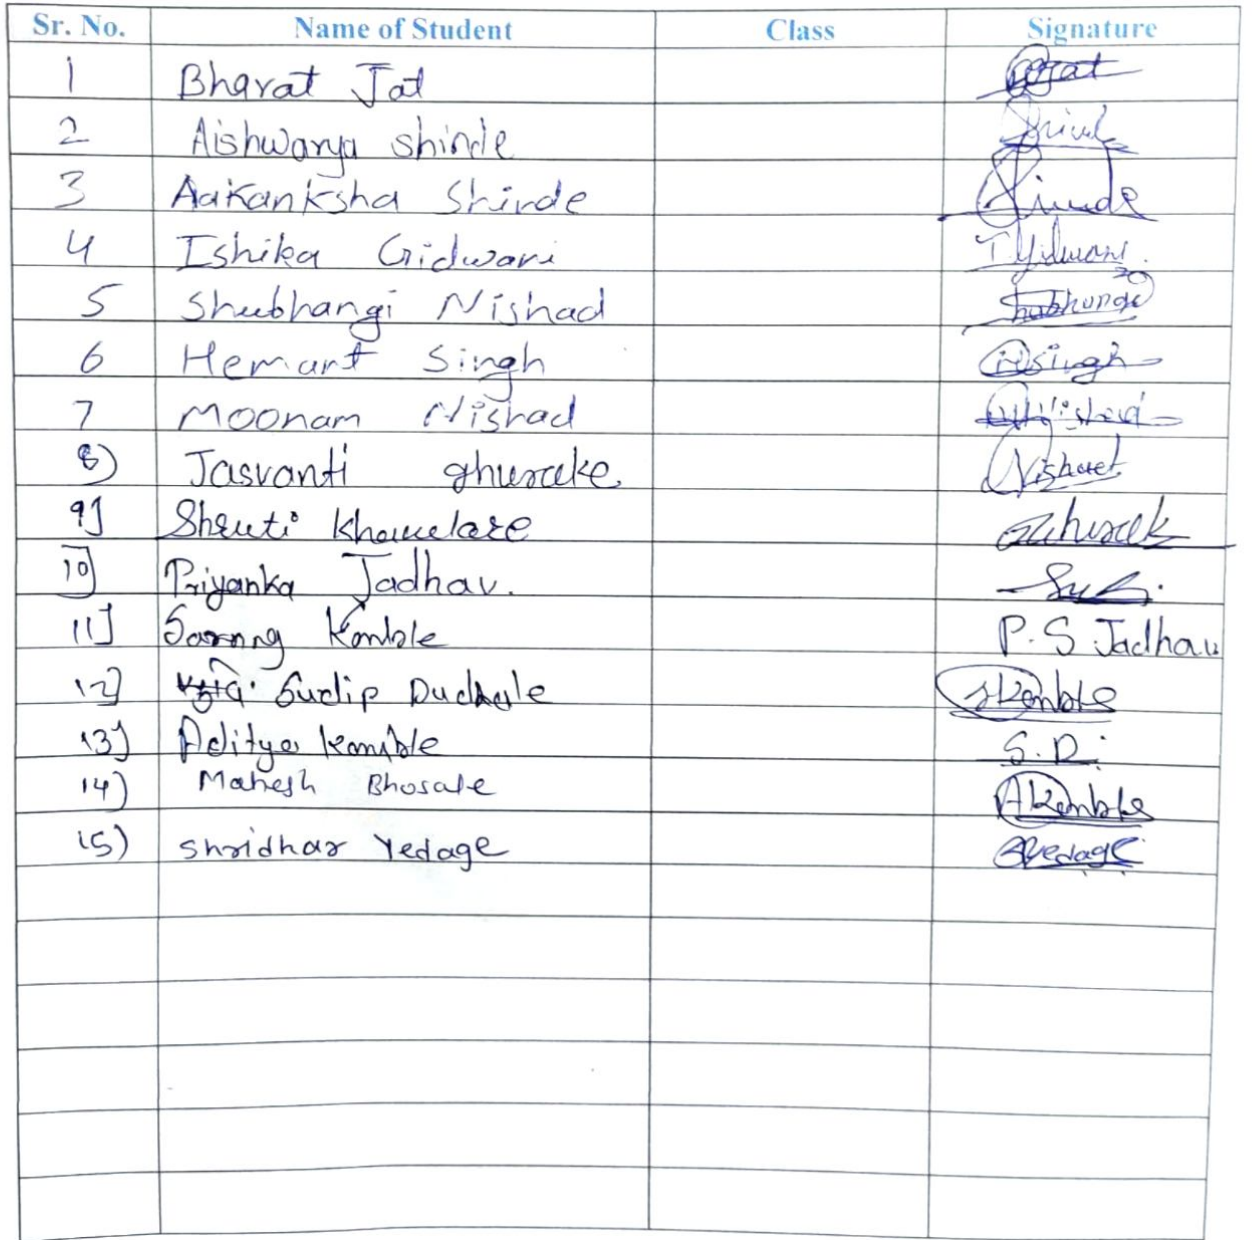 Sr. No. Name of Student Class Signature
1 Bharat Jat
2 Aishwarya shinde
3 Aakanksha Shinde Shinde
4 Ishika Gidwani IGidwani.
5 Shubhangi Nishad Shubhangi
6 Hemant Singh HSingh
7 Moonam Nishad Nishad
8) Jasvanti ghurake Nishad
9] Shruti
10] Priyanka Jadhav.
11] Sarang Kamble P.S Jadhav
12] Sudip SKamble
13] Aditya Kamble S.D.
14) Mahesh Bhosale AKamble
15) shridhar Yedage SYedage